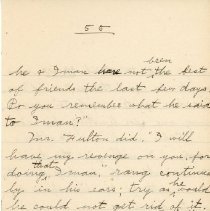 55
been
he & Iman have not the best
of friends the last few days
Do you remember what he said
to Iman?"
Mr. Fulton did, "I will
have my revenge on you, for
that
doing, Iman, rang continues
by in his ears; try as he
he could not get rid of it.